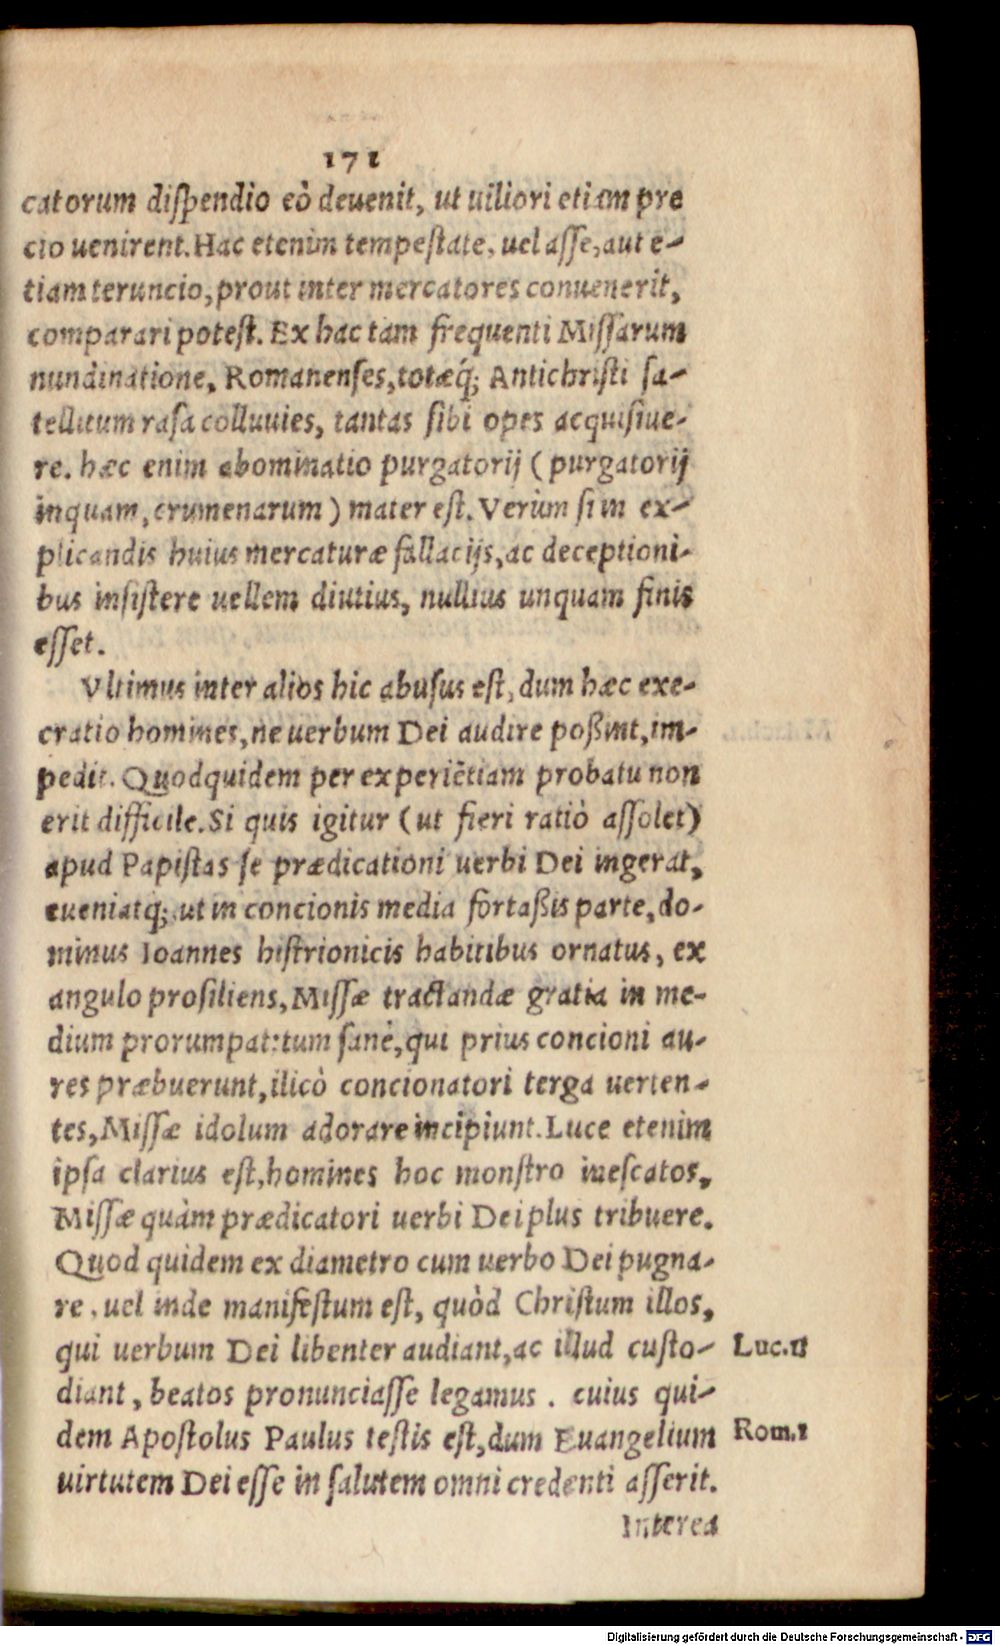 171
catorum diſpendio eò deuenit, ut uiliori etiam pre
cio uenirent. Hac etenim tempeſtate, uel aſſe, aut e-
tiam teruncio, prout inter mercatores conuenerit,
comparari poteſt. Ex hac tam frequenti Miſſarum
nundinatione, Romanenſes, totæq́; Antichriſti ſa-
tellitum raſa colluuies, tantas ſibi opes acquiſiue-
re. hæc enim abominatio purgatorij (purgatorij
inquam, crumenarum) mater eſt. Verùm ſi in ex-
plicandis huius mercaturæ fallacijs, ac deceptioni-
bus inſiſtere uellem diutius, nullius unquam finis
eſſet.
Vltimus inter alios hic abuſus eſt, dum hæc exe-
cratio homines, ne uerbum Dei audire poßint, im-
pedit. Quodquidem per experiẽtiam probatu non
erit difficile. Si quis igitur (ut fieri ratiò aſſolet)
apud Papiſtas ſe prædicationi uerbi Dei ingerat,
eueniatq́; ut in concionis media fortaßis parte, do-
minus Ioannes hiſtrionicis habitibus ornatus, ex
angulo proſiliens, Miſſæ tractandæ gratia in me-
dium prorumpat: tum ſanè, qui prius concioni au-
res præbuerunt, ilicò concionatori terga uerten-
tes, Miſſæ idolum adorare incipiunt. Luce etenim
ipſa clarius eſt, homines hoc monſtro ineſcatos,
Miſſæ quàm prædicatori uerbi Dei plus tribuere.
Quod quidem ex diametro cum uerbo Dei pugna-
re, uel inde manifeſtum eſt, quòd Chriſtum illos,
qui uerbum Dei libenter audiant, ac illud cuſto- Luc.11
diant, beatos pronunciaſſe legamus. cuius qui-
dem Apoſtolus Paulus teſtis eſt, dum Euangelium Rom.1
uirtutem Dei eſſe in ſalutem omni credenti aſſerit.
Interea
Digitalisierung gefördert durch die Deutsche Forschungsgemeinschaft - DFG